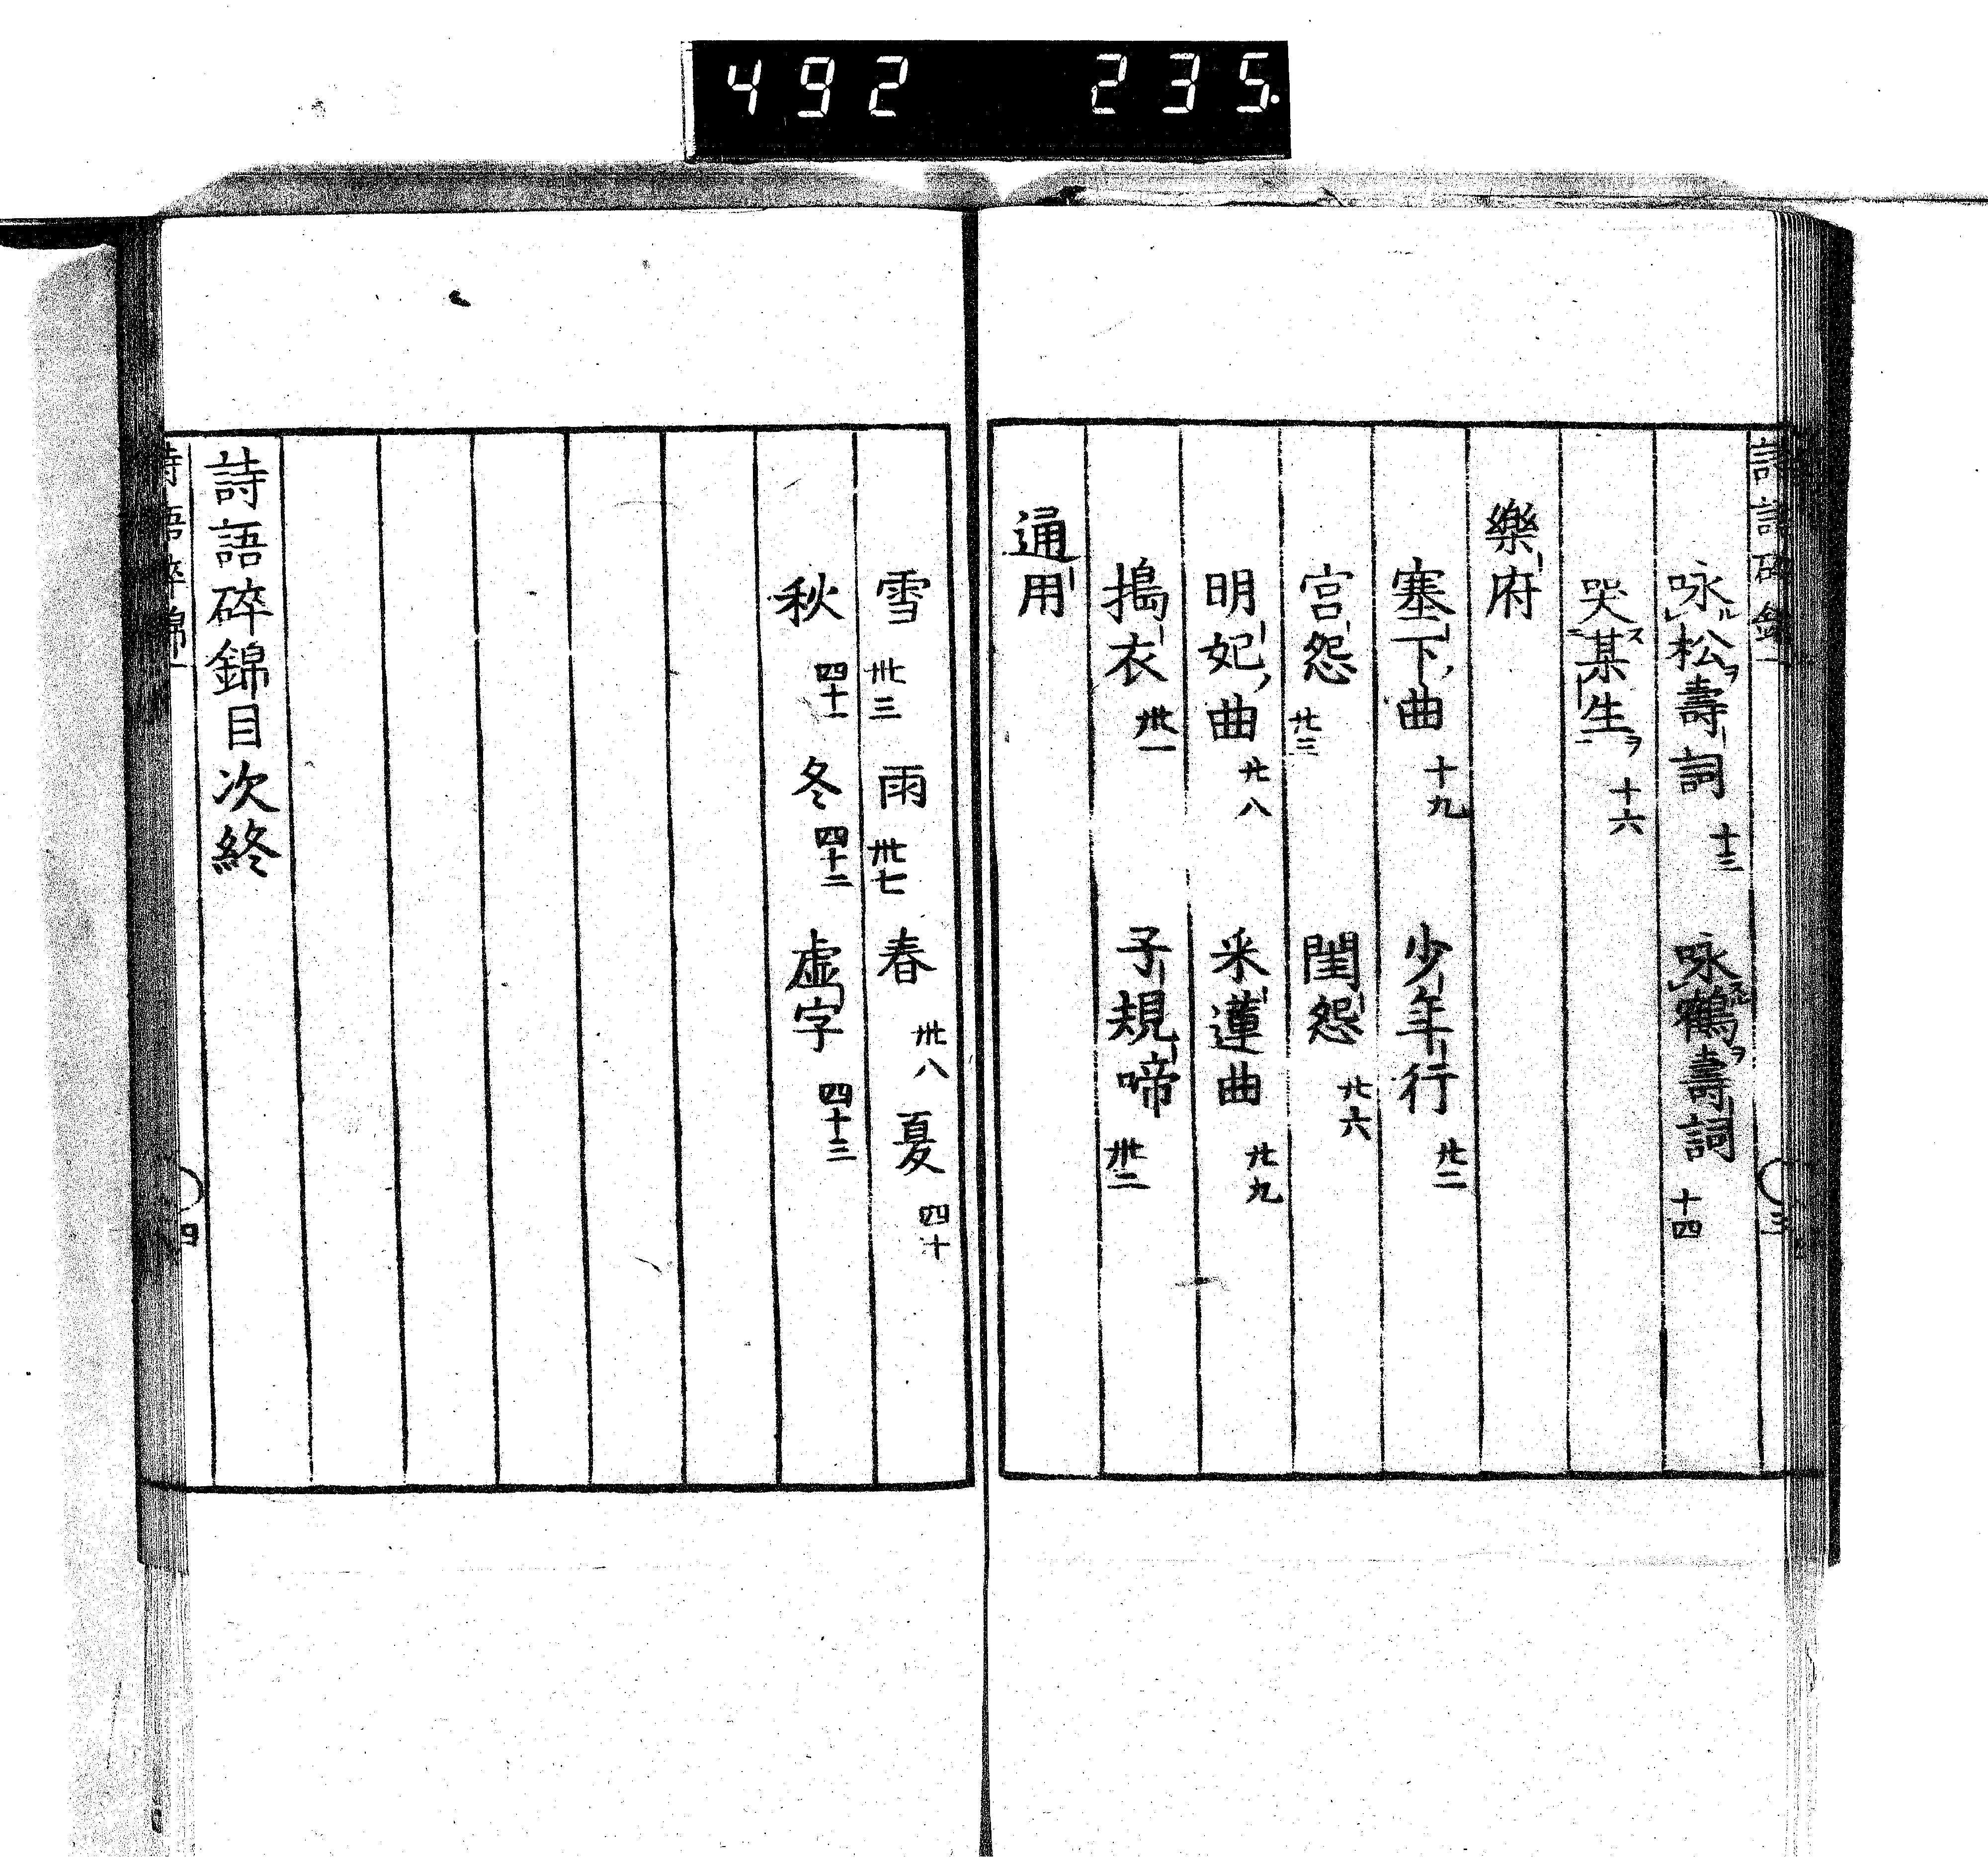 492 235.
詩語碎錦一 三
咏ル松ヲ壽詞 十三 咏スル鶴ヲ壽詞 十四
哭ス某生ヲ 十六
樂府
塞下曲 十九 少年行 廿二
宮怨 廿三 閨怨 廿六
明妃曲 廿八 采蓮曲 廿九
搗衣 卅一 子規啼 卅二
通用
雪 卅三 雨 卅七 春 卅八 夏 四十
秋 四十一 冬 四十二 虚字 四十三
詩語碎錦目次終
詩語碎錦一 四